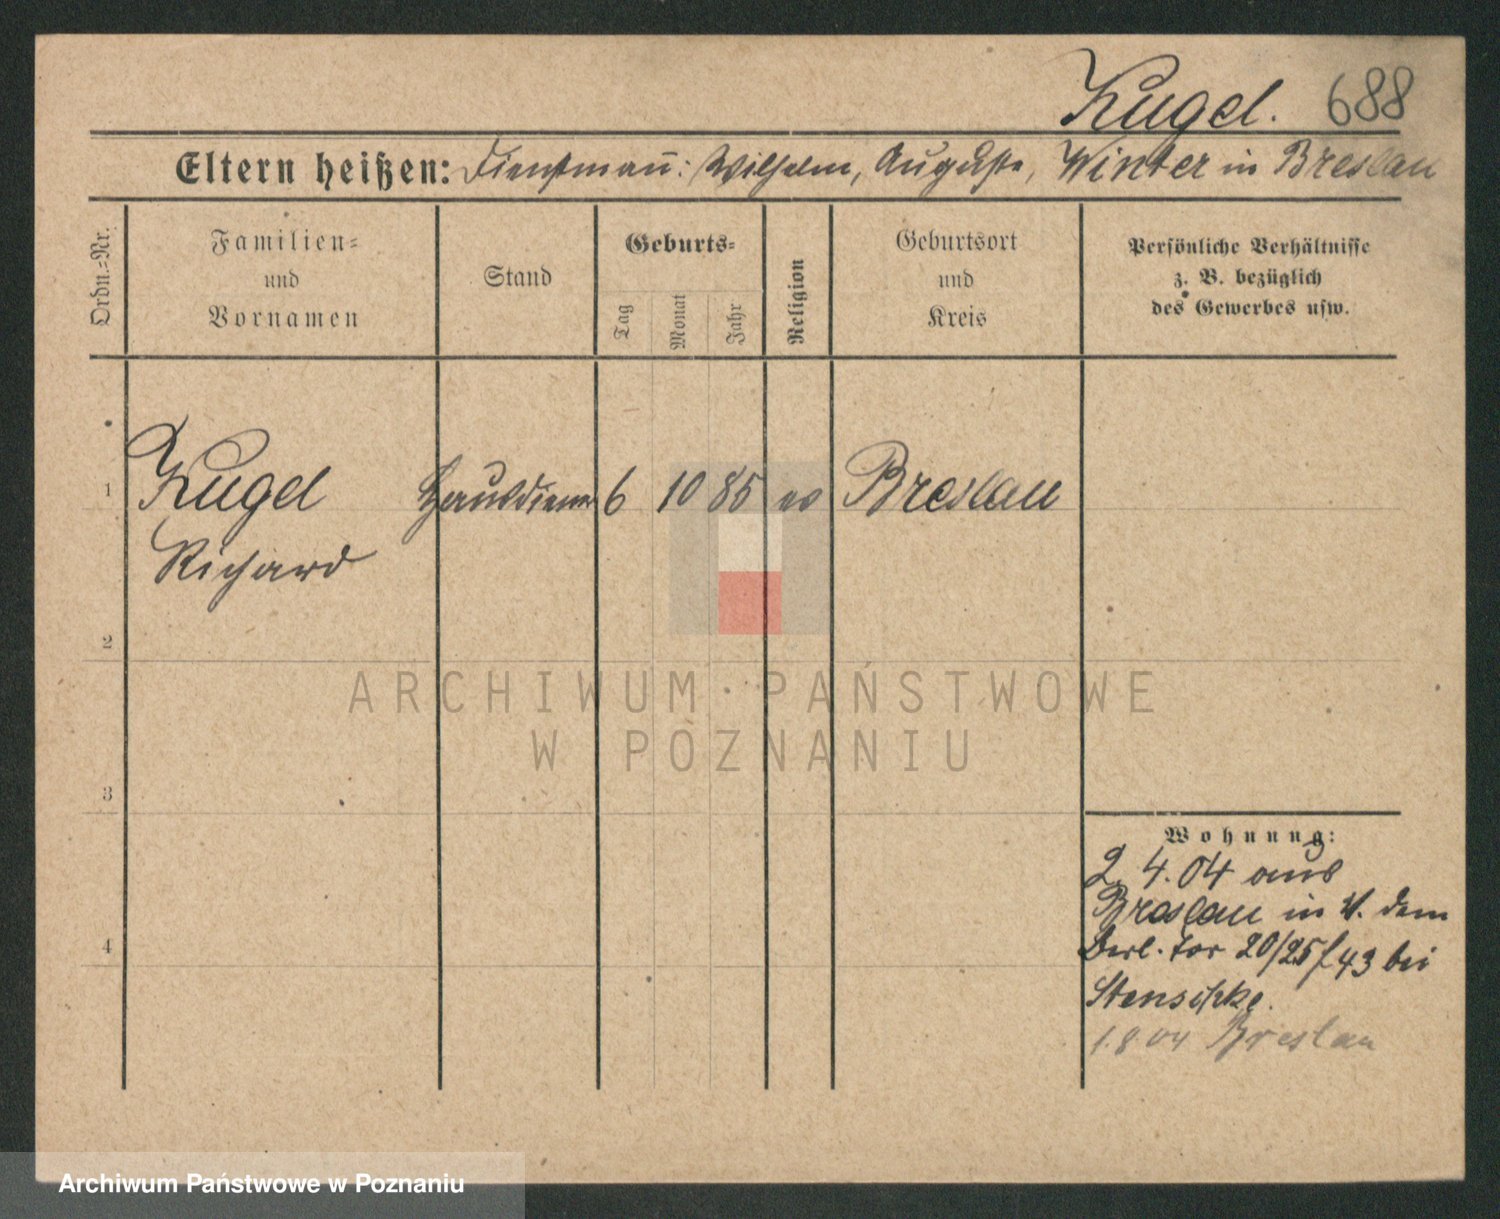 Kugel. 688
Eltern heißen: Dienstmañ: Wilhelm, Auguste, Winter in Breslau
Ordn.-Nr.
Familien-
und
Vornamen
Stand
Geburts-
Tag
Monat
Jahr
Religion
Geburtsort
und
Kreis
Persönliche Verhältnisse
z. B. bezüglich
des Gewerbes usw.
1 Kugel Hausdiener 6 10 85 ev Breslau
Richard
2
3
4
ARCHIWUM PAŃSTWOWE
W POZNANIU
Wohnung:
2. 4. 04 aus
Breslau in V. dem
Berl. Tor 20/25 f 43 bei
1. 8 04 Breslau
Archiwum Państwowe w Poznaniu